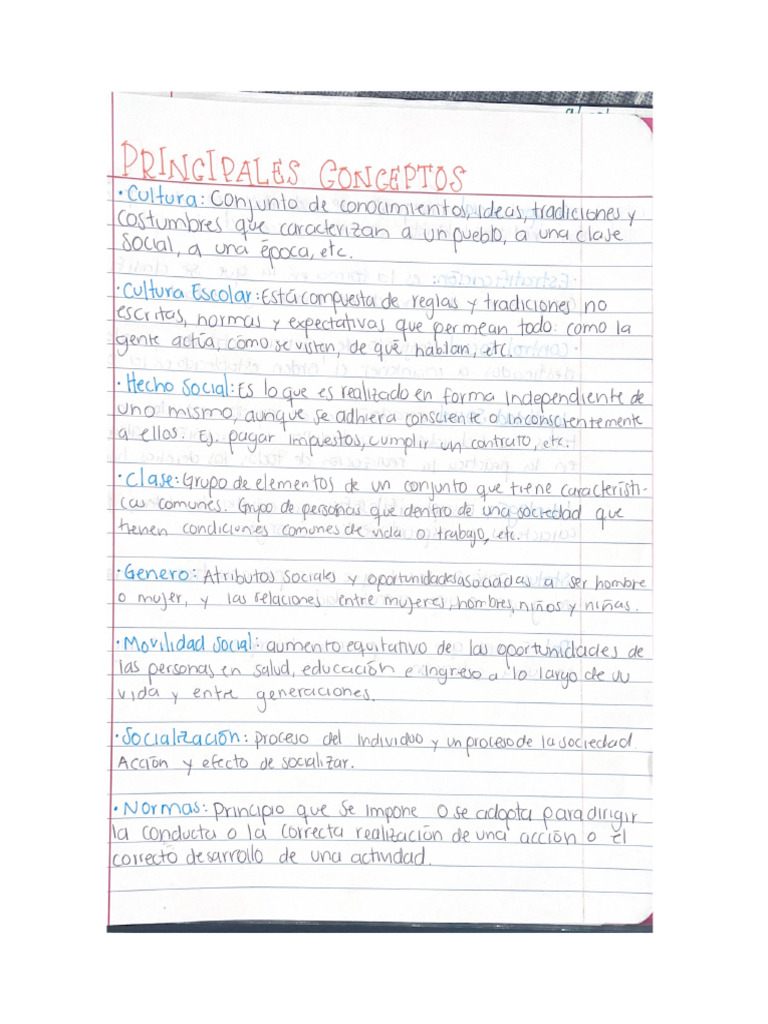 PRINCIPALES CONCEPTOS
• Cultura: Conjunto de conocimientos, ideas, tradiciones y
costumbres que caracterizan a un pueblo, a una clase
social, a una época, etc.
• Cultura Escolar: Está compuesta de reglas y tradiciones no
escritas, normas y expectativas que permean todo: como la
gente actúa, cómo se visten, de qué hablan, etc.
• Hecho Social: Es lo que es realizado en forma independiente de
uno mismo, aunque se adhiera consciente o inconscientemente
a ellos. Ej. pagar impuestos, cumplir un contrato, etc.
• Clase: Grupo de elementos de un conjunto que tiene característi-
cas comunes. Grupo de personas que dentro de una sociedad que
tienen condiciones comunes de vida o trabajo, etc.
• Genero: Atributos sociales y oportunidades asociadas a ser hombre
o mujer, y las relaciones entre mujeres, hombres, niños y niñas.
• Movilidad Social: aumento equitativo de las oportunidades de
las personas en salud, educación e ingreso a lo largo de su
vida y entre generaciones.
• Socialización: proceso del individuo y un proceso de la sociedad.
Acción y efecto de socializar.
• Normas: Principio que se impone o se adopta para dirigir
la conducta o la correcta realización de una acción o el
correcto desarrollo de una actividad.